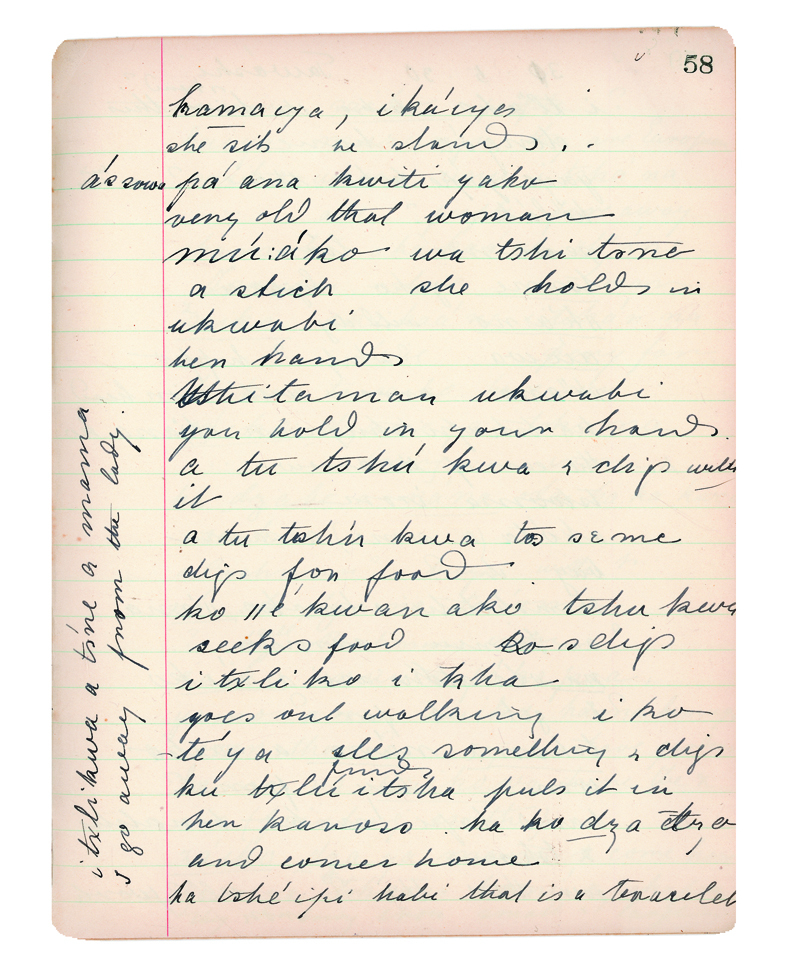 58
kamacya, i kácyes
she sits he stands . .
pá ana kwiti yako
very old that woman
mú:áko wa tshi tsne
a stick she holds in
ukwabi
her hands
tshitaman ukwabi
you hold in your hands.
a tu tshú kwa & digs with
it
a tu tshú kwa to seme
digs for food
ko ǁé kwan ako tshu kwa
seeks food so digs
i txli ko i kha
goes out walking i ko
téya sees something & digs
finds
ku txlu itsha puts it in
her kaross ha ko dza
and comes home
ha tshé ipi habi that is a
i txlikwa a tsíne a mama
I go away from the lady.